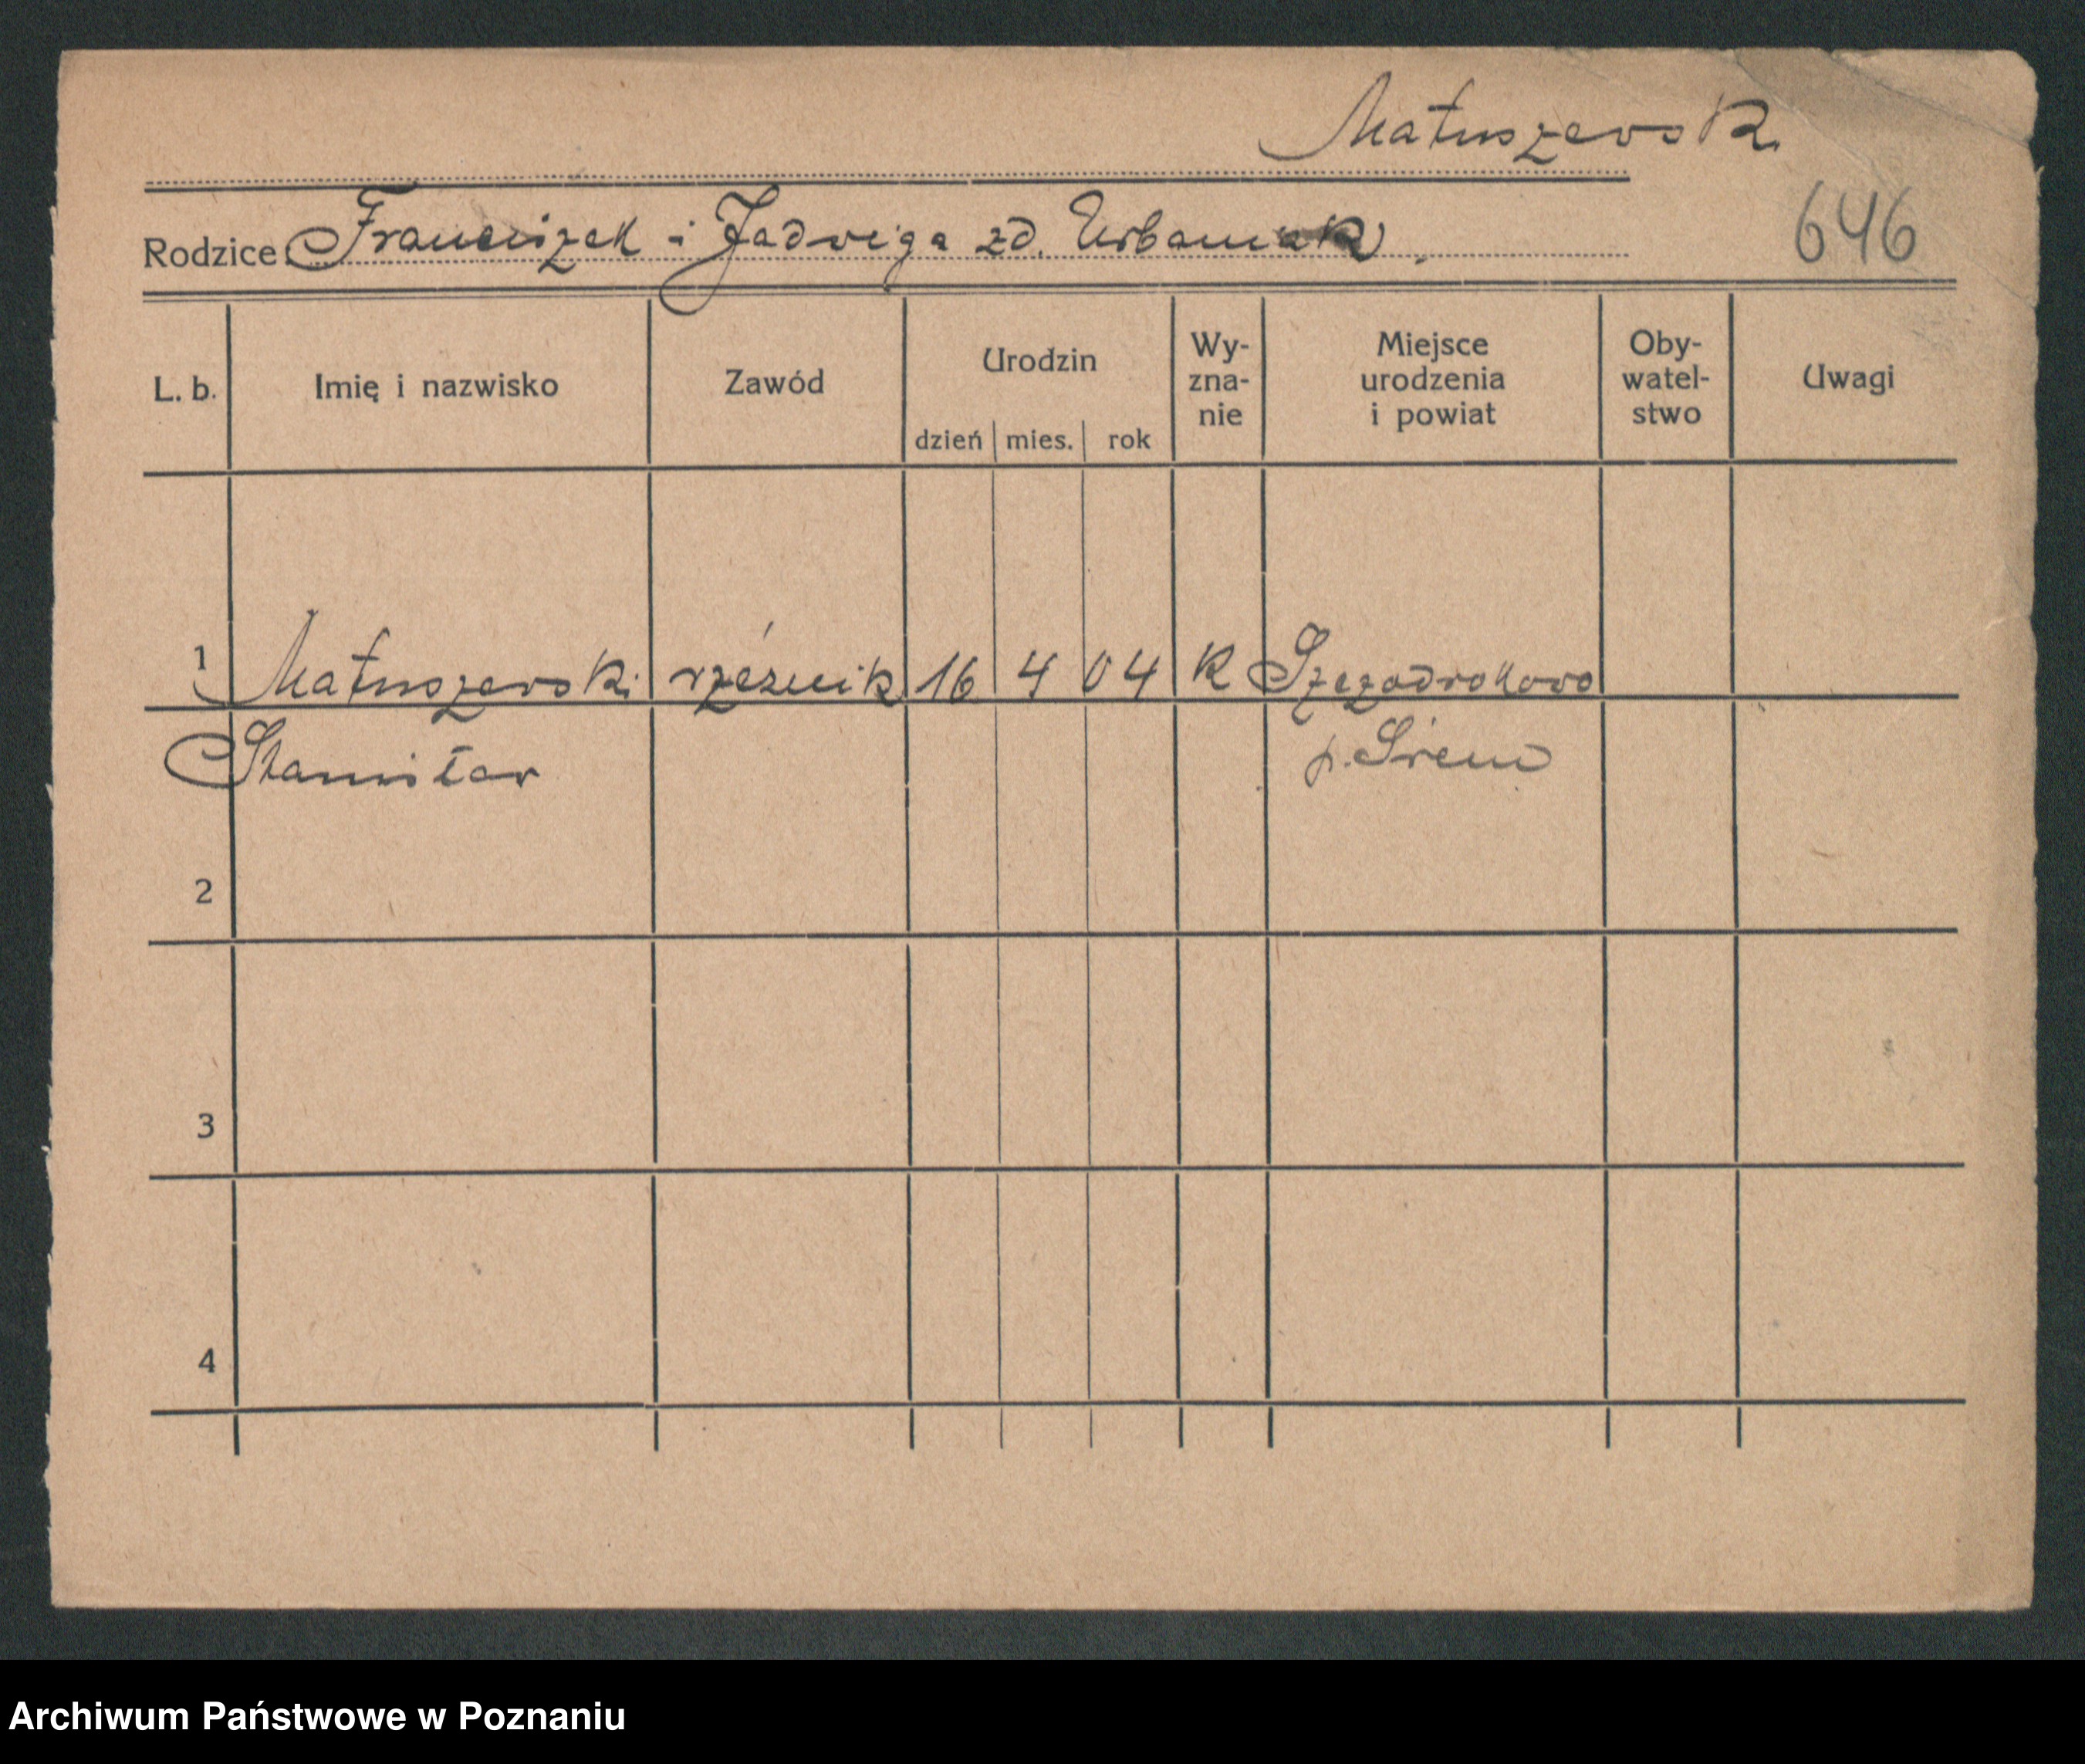 Matuszewski
646
Rodzice Franciszek i Jadwiga zd. Urbaniak.
L. b. Imię i nazwisko Zawód Urodzin dzień mies. rok Wy-zna-nie Miejsce urodzenia i powiat Oby-watel-stwo Uwagi
1 Matuszewski rzeźnik 16 4 04 K Szczodrohowo
Stanisław p. Śrem
2
3
4
Archiwum Państwowe w Poznaniu